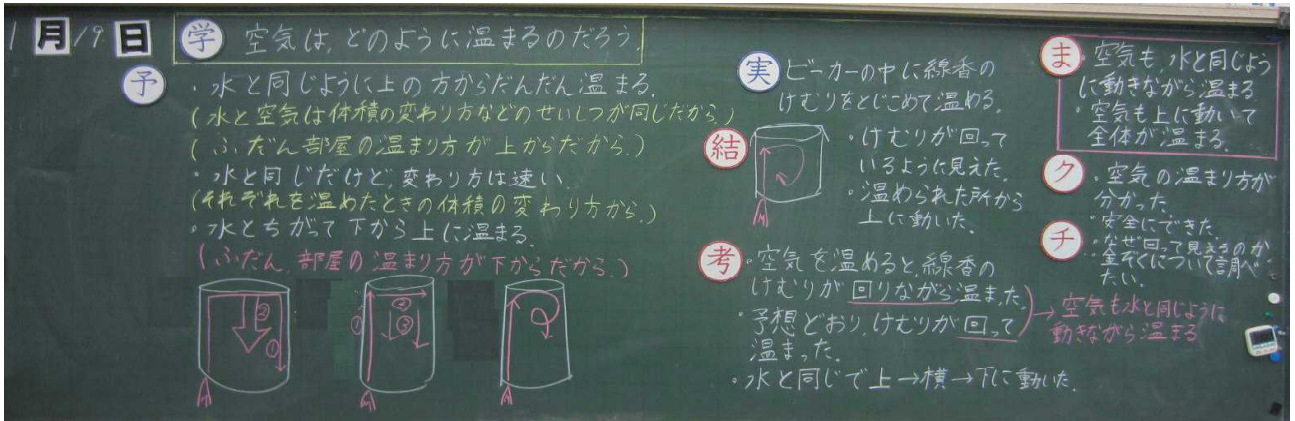 1月19日
学 空気は、どのように温まるのだろう。
予 ・水と同じように上の方からだんだん温まる。
(水と空気は体積の変わり方などのせいしつが同じだから)
(ふだん部屋の温まり方が上からだから。)
・水と同じだけど、変わり方は速い。
(それぞれを温めたときの体積の変わり方から。)
・水とちがって下から上に温まる。
(ふだん、部屋の温まり方が下からだから。)
②
①
①
②
③
実 ビーカーの中に線香の
けむりをとじこめて温める。
結 ・けむりが回って
いるように見えた。
・温められた所から
上に動いた。
考 ・空気を温めると、線香の
けむりが回りながら温まった。
・予想どおり、けむりが回って
温まった。
→空気も水と同じように
動きながら温まる
・水と同じで上→横→下に動いた。
ま ・空気も、水と同じよう
に動きながら温まる
・空気も上に動いて
全体が温まる。
ク ・空気の温まり方が
分かった。
・安全にできた。
チ ・なぜ回って見えるのか
・金ぞくについて調べ
たい。